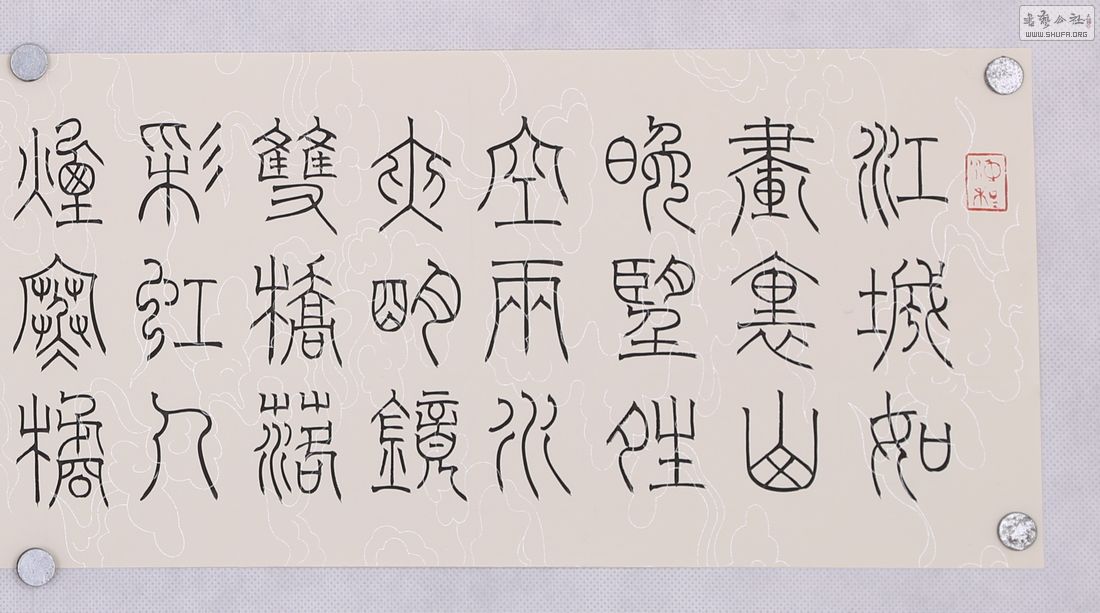 江城如
畫裏山
晚望晴
空兩水
夾明鏡
雙橋落
彩虹人
煙寒橘
書藝公社
WWW.SHUFA.ORG